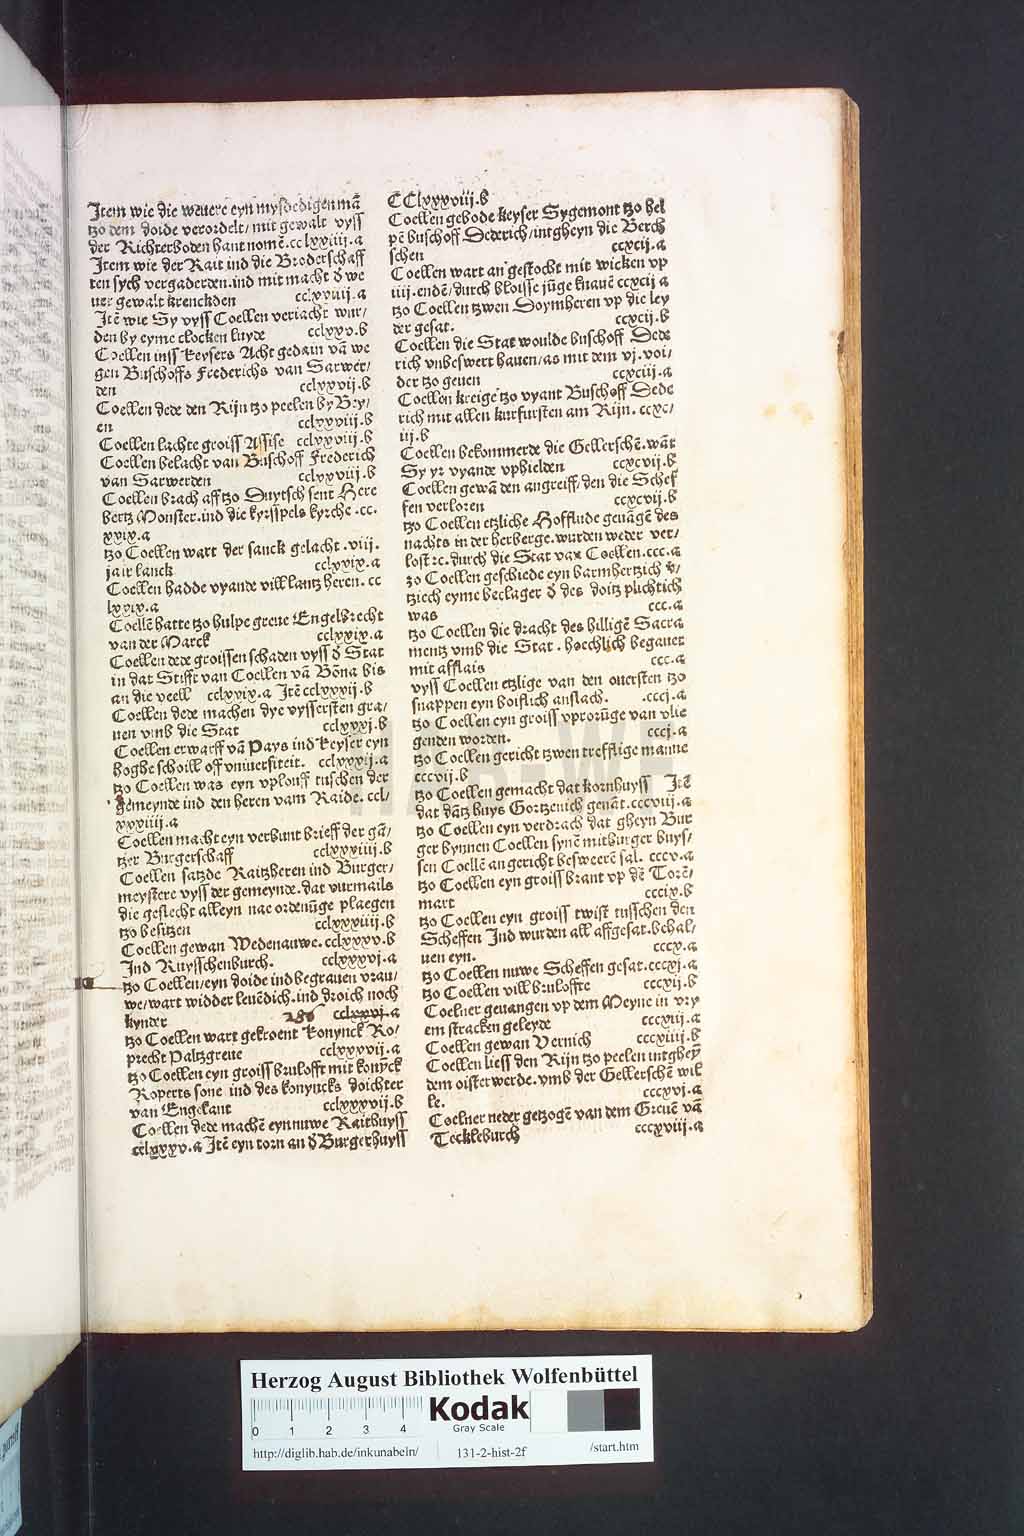 Item wie die weuere eyn mysdedigen mã
tzo dem doide verordelt/ mit gewalt vyss
der Richterboden hant nomẽ.cclxxiiij.a
Item wie der Rait ind die Broderschaff
ten sych vergaderden.ind mit macht d we
uer gewalt krenckden cclxxiiij.a
Itẽ wie Sy vyss Coellen veriacht wur/
den by eyme clocken luyde cclxxv.b
Coellen inss keysers Acht gedain vã we
gen Buschoffs Frederichs van Sarwer/
den cclxxvij.b
Coellen dede den Rijn tzo peelen by Bey/
en cclxxviij.b
Coellen lachte groiss Assise cclxxviij.b
Coellen belacht van Buschoff Frederich
van Sarwerden cclxxviij.b
Coellen brach aff tzo Duytsch sent Here
bertz Monster.ind die kyrsspels kyrche .cc.
xxix.a
tzo Coellen wart der sanck gelacht .viij.
jair lanck cclxxix.a
Coellen hadde vyande vill lantz heren. cc
lxxix.a
Coellẽ hatte tzo hulpe greue Engelbrecht
van der Marck cclxxix.a
Coellen dede groissen schaden vyss d Stat
in dat Stifft van Coellen vã Bõna bis
an die veell cclxxix.a Itẽ cclxxxij.b
Coellen dede machen dye vyssersten gra/
uen vmb die Stat cclxxxj.b
Coellen erwarff vã Pays ind keyser eyn
hoghe schoill off vniuersiteit. cclxxxij.a
tzo Coellen was eyn vplouff tuschen der
gemeynde ind den heren vam Raide. ccl/
xxxiiij.a
Coellen macht eyn verbunt brieff der gã/
tzer Burgerschaff cclxxxiiij.b
Coellen satzde Raitzheren ind Burger/
meystere vyss der gemeynde.dat vurmails
die geslecht alleyn nae ordenũge plaegen
tzo besitzen cclxxxiiij.b
Coellen gewan Wedenauwe. cclxxxv.b
Ind Ruysschenburch. cclxxxvj.a
tzo Coellen/eyn doide ind begrauen vrau/
we/wart widder leuẽdich.ind droich noch
kynder 286 cclxxvj.a
tzo Coellen wart gekroent konynck Ro/
precht Paltzgreue cclxxxvij.a
tzo Coellen eyn groiss brulofft mit konỹck
Roperts sone ind des konyncks doichter
van Engelant cclxxxvij.b
Coellen dede machẽ eyn nuwe Raithuyss
cclxxxv.a Itẽ eyn torn an d Burgerhuyss
CClxxxviij.b
Coellen gebode keyser Sygemont tzo hel
pẽ buschoff Dederich/intgheyn die Berch
schen ccxcij.a
Coellen wart an gestocht mit wicken vp
iiij.endẽ/durch bloisse jũge knauẽ ccxcij a
tzo Coellen tzwen Doymheren vp die ley
der gesat. ccxcij.b
Coellen die Stat woulde buschoff Dede
rich vnbeswert hauen/as mit dem vj.voi/
der tzo geuen ccxciij.a
Coellen kreige tzo vyant Buschoff Dede
rich mit allen kurfursten am Rijn. ccxc/
iij.b
Coellen bekommerde die Gellerschẽ.wãt
Sy yr vyande vphielden ccxcvij.b
Coellen gewã den angreiff/den die Schef
fen verloren ccxcvij.b
tzo Coellen etzliche Hofflude geuãgẽ des
nachts in der herberge.wurden weder ver/
lost ꝛc.durch die Stat van Coellen.ccc.a
zo Coellen geschiede eyn barmhertzich v̾/
tziech eyme beclager d des doitz plichtich
was ccc.a
tzo Coellen die dracht des hilligẽ Sacra
mentz vmb die Stat . hoechlich begauet
mit afflais ccc.a
vyss Coellen etzlige van den ouersten tzo
snappen eyn boisslich anslach. .cccj.a
tzo Coellen eyn groiss vprorũge van vlie
genden worden. cccj.a
tzo Coellen gericht tzwen trefflige manne
cccvij.b
tzo Coellen gemacht dat kornhuyss Itẽ
dat dãtz huys Gortzenich genãt.cccviij.a
tzo Coellen eyn verdrach dat gheyn Bur
ger bynnen Coellen synẽ mitburger buys/
sen Coellẽ an gericht besweerẽ sal. cccv.a
tzo Coellen eyn groiss brant vp dẽ Torẽ/
mart cccix.b
tzo Coellen eyn groiss twist tusschen den
Scheffen Ind wurden all affgesat.behal/
uen eyn. cccx.a
tzo Coellen nuwe Scheffen gesat.cccxj.a
tzo Coellen vill bruloffte cccxij.b
Coelner geuangen vp dem Meyne in vry
em stracken geleyde cccxiij.a
Coellen gewan Vernich cccxiiij.b
Coellen liess den Rijn tzo peelen intgheỹ
dem oisterwerde.vmb der Gellerschẽ wil
le. cccxvj.a
Coelner neder getzogẽ van dem Greuẽ vã
Teckleburch cccxviij.a
Herzog August Bibliothek Wolfenbüttel
0 1 2 3 4
Kodak
Gray Scale
http://diglib.hab.de/inkunabeln/ 131-2-hist-2f /start.htm